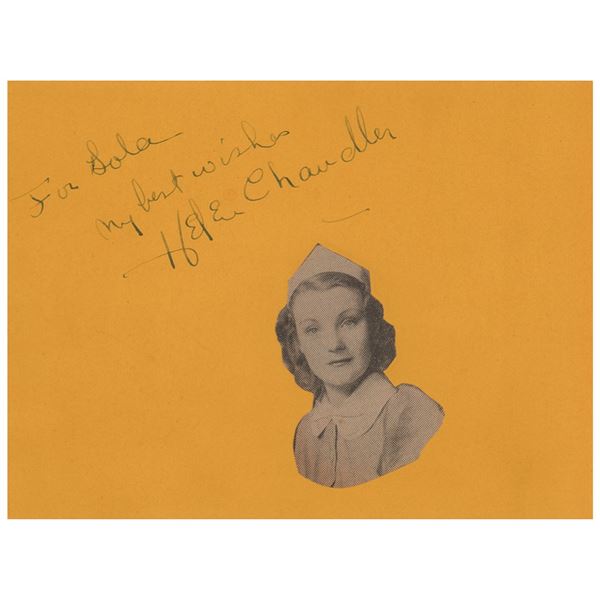 For Lola
my best wishes
Helen Chandler